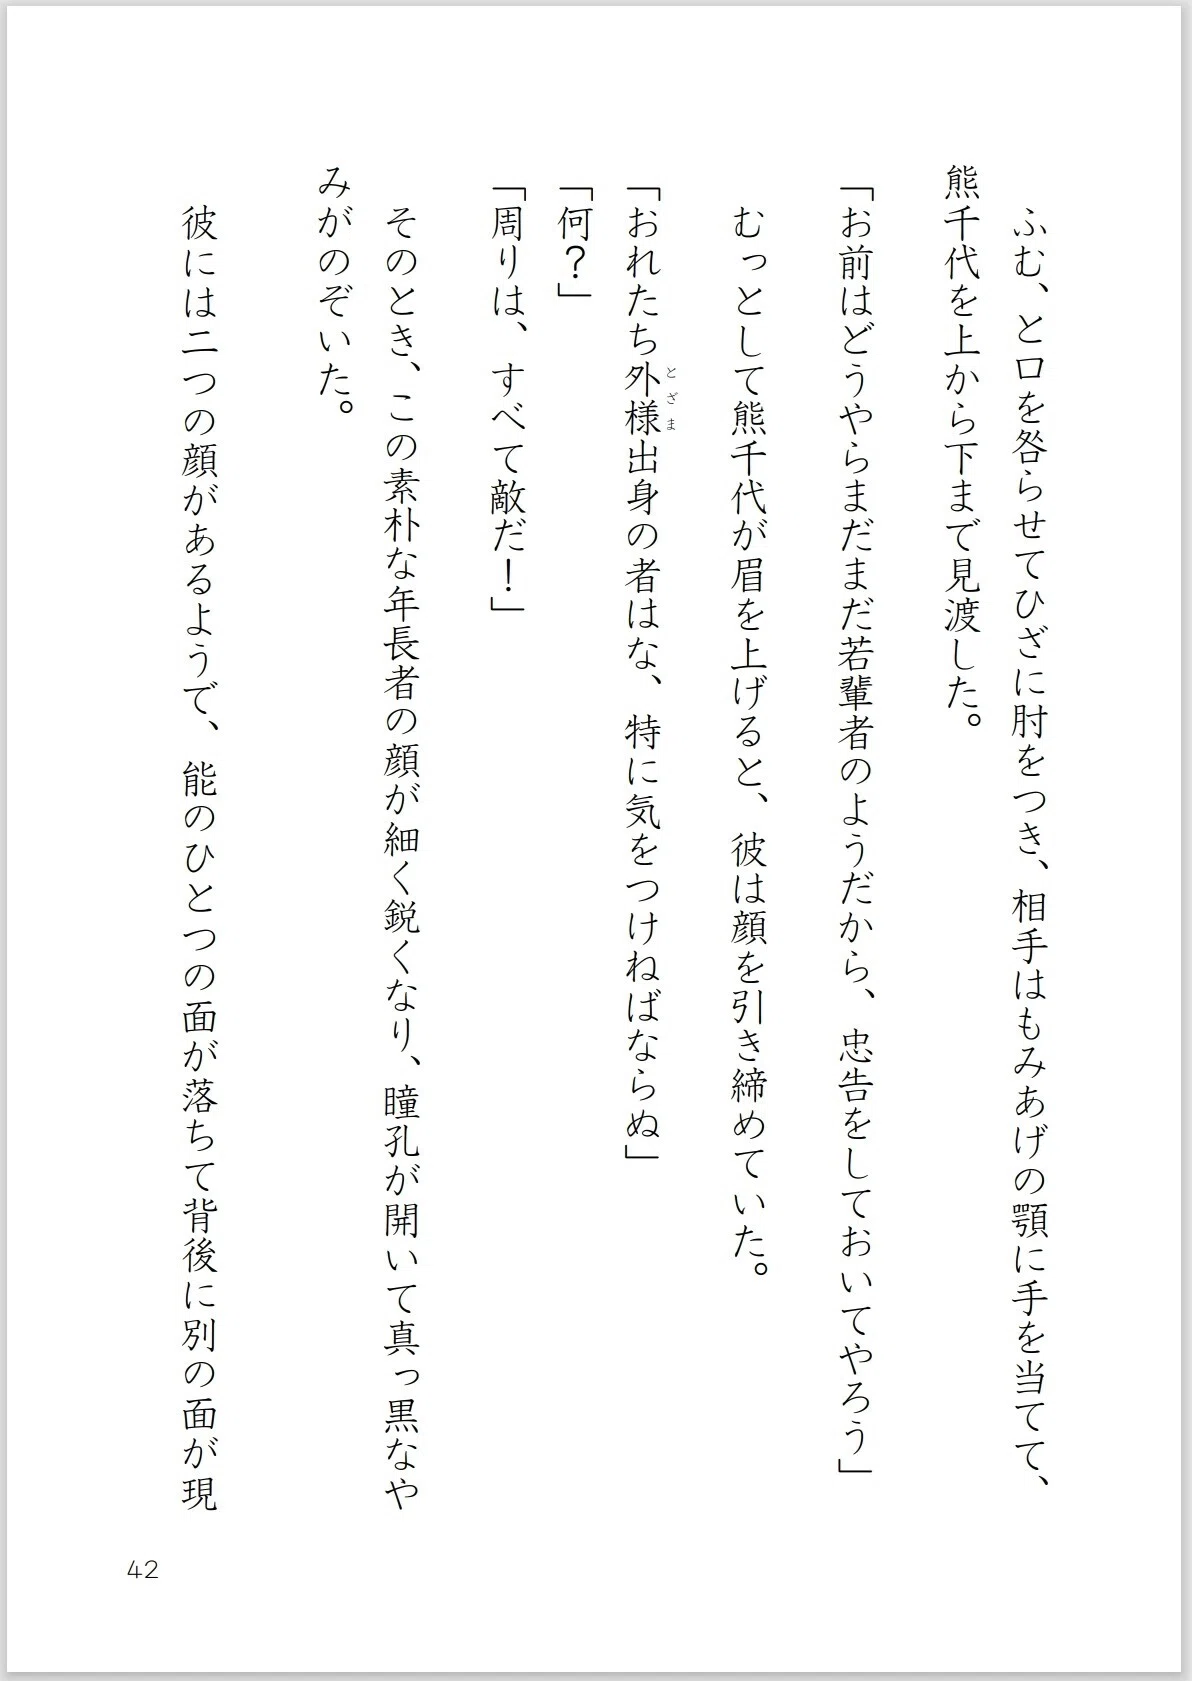 ふむ、と口を咎らせてひざに肘をつき、相手はもみあげの顎に手を当てて、
熊千代を上から下まで見渡した。
「お前はどうやらまだまだ若輩者のようだから、忠告をしておいてやろう」
　むっとして熊千代が眉を上げると、彼は顔を引き締めていた。
「おれたち外様出身の者はな、特に気をつけねばならぬ」
とざま
「何？」
「周りは、すべて敵だ！」
　そのとき、この素朴な年長者の顔が細く鋭くなり、瞳孔が開いて真っ黒なや
みがのぞいた。
　彼には二つの顔があるようで、能のひとつの面が落ちて背後に別の面が現
42